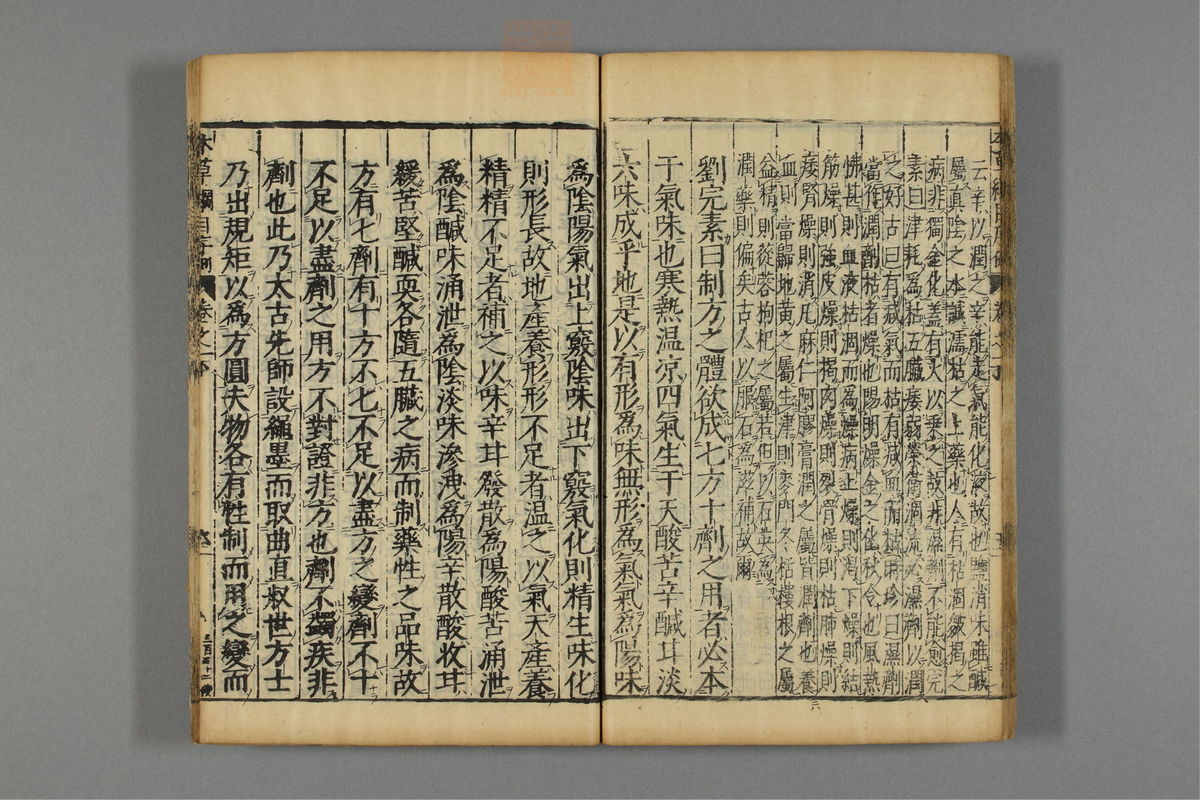 云辛以潤之辛能走氣能化液故也鹽消味雖鹹
屬真陰之本誠濡枯之上藥也人有枯涸皴揭之
病非獨金化蓋有火以乗之故非濕劑不能愈完
素曰津耗為枯五臟痿弱榮衞涸流必濕劑以潤
之好古曰有減氣而枯有減血而枯時珍曰濕劑
當作潤劑枯者燥也陽明燥金之化秋令也風熱
怫甚則血液枯涸而為燥病上燥則渴下燥則結
筋燥則強皮燥則揭肉燥則裂骨燥則枯肺燥則
痿腎燥則消凡麻仁阿膠膏潤之屬皆潤劑也養
血則當歸地黄之屬生津則麥門冬栝樓根之屬
益精則蓯蓉枸杞之屬若但以石英為
潤藥則偏矣古人以服石為滋補故爾
劉完素曰制方之體欲成七方十劑之用者必本
于氣味也寒熱温凉四氣生于天酸苦辛鹹甘淡
六味成乎地是以有形為味無形為氣氣為陽味
為陰陽氣出上竅陰味出下竅氣化則精生味化
則形長故地產養形形不足者温之以氣天產養
精精不足者補之以味辛甘發散為陽酸苦涌泄
為陰鹹味涌泄為陰淡味滲洩為陽辛散酸收甘
緩苦堅鹹耎各隨五臟之病而制藥性之品味故
方有七劑有十方不七不足以盡方之變劑不十
不足以盡劑之用方不對證非方也劑不蠲疾非
劑也此乃太古先師設繩墨而取曲直叔世方士
乃出規矩以為方圓夫物各有性制而用之變而
本草綱目序例 卷之一